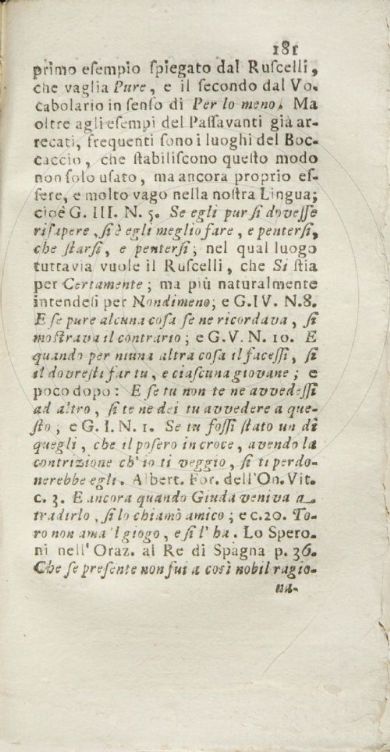 181
primo esempio spiegato dal Ruscelli,
che vaglia Pure, e il secondo dal Vo-
cabolario in senso di Per lo meno. Ma
oltre agli esempi del Passavanti già ar-
recati, frequenti sono i luoghi del Boc-
caccio, che stabiliscono questo modo
non solo usato, ma ancora proprio es-
sere, e molto vago nella nostra Lingua;
cioè G. III. N. 5. Se egli pur si dovesse
risapere, si è egli meglio fare, e pentersi,
che starsi, e pentersi; nel qual luogo
tuttavia vuole il Ruscelli, che Si stia
per Certamente; ma più naturalmente
intendesi per Nondimeno; e G. IV. N. 8.
E se pure alcuna cosa se ne ricordava, si
mostrava il contrario; e G. V. N. 10. E
quando per niuna altra cosa il facessi, si
il dovresti far tu, e ciascuna giovane; e
poco dopo: E se tu non te ne avvedessi
ad altro, si te ne dei tu avvedere a que-
sto; e G. I. N. 1. Se tu fossi stato un di
quegli, che il posero in croce, avendo la
contrizione ch' io ti veggio, si ti perdo-
nerebbe egli. Albert. For. dell'On. Vit.
c. 3. E ancora quando Giuda veniva a
tradirlo, si lo chiamò amico; e c. 20. To-
ro non ama 'l giogo, e si l' ha. Lo Spero-
ni nell' Oraz. al Re di Spagna p. 36.
Che se presente non fui a così nobil ragio-
na-